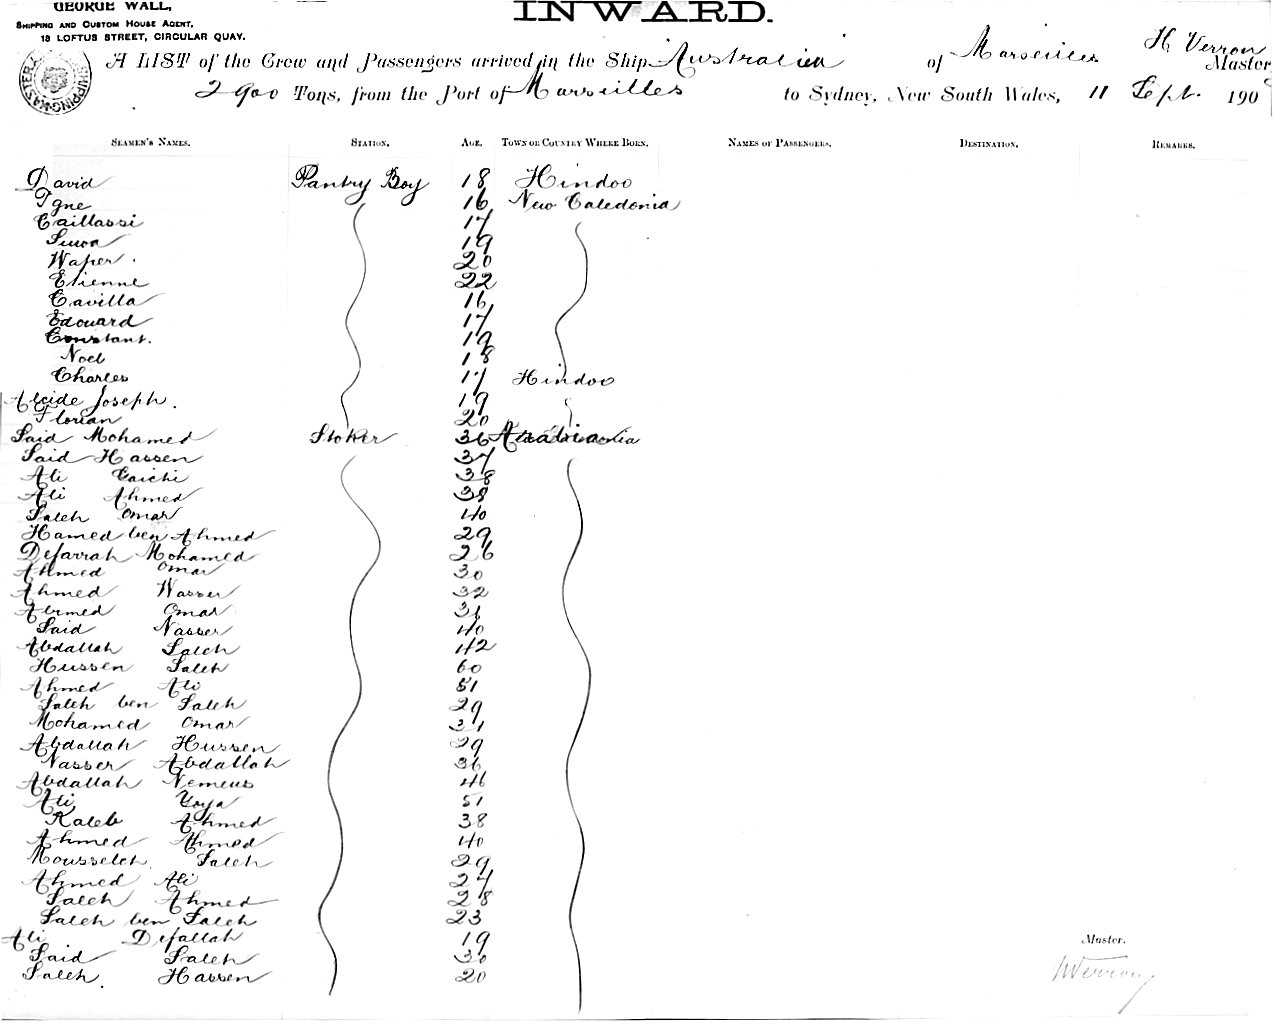 GEORGE WALL,
SHIPPING AND CUSTOM HOUSE AGENT,
18 LOFTUS STREET, CIRCULAR QUAY.
INWARD.
A LIST of the Crew and Passengers arrived in the Ship Australien of Marseilles H Verron Master
2900 Tons, from the Port of Marseilles to Sydney, New South Wales, 11 Sept. 190
SEAMEN'S NAMES. STATION. AGE. TOWN OR COUNTRY WHERE BORN. NAMES OF PASSENGERS. DESTINATION. REMARKS.
David Pantry Boy 18 Hindoo
Igne 16 New Caledonia
Caillassi 17
19
Waper 20
Etienne 22
Cavilla 16
Edouard 17
Constant. 19
Noel 18
Charles 17 Hindoo
Alcide Joseph. 19
Florian 20
Said Mohamed Stoker 36 Arabia
Said Hassen 37
Ali 38
Ali Ahmed 38
Saleh Omar 40
Hamed ben Ahmed 29
Defarrah Mohamed 26
Ahmed Omar 30
Ahmed Nasser 32
Ahmed Omar 36
Said Nasser 40
Abdallah Saleh 42
Hussen Saleh 60
Ahmed Ali 51
Saleh ben Saleh 29
Mohamed Omar 31
Abdallah Hussen 29
Nasser Abdallah 36
Abdallah Nemeus 46
Ali 51
Kaleb Ahmed 38
Ahmed Ahmed 40
Mousseleh Saleh 29
Ahmed Ali 27
Saleh Ahmed 28
Saleh ben Saleh 23
Ali Defallah 19
Said Saleh 30
Saleh Hassen 20
Master.
HVerron